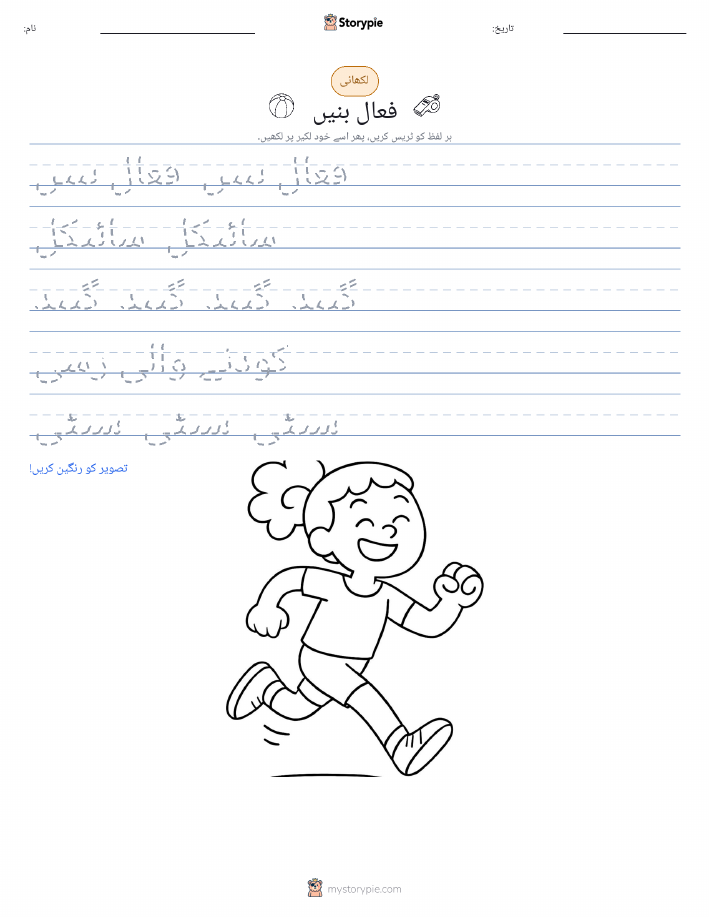 نام:
Storypie
تاریخ:
لکھائی
فعال بنیں
ہر لفظ کو ٹریس کریں، پھر اسے خود لکیر پر لکھیں۔
فعال بنیں فعال بنیں
سائیکل سائیکل
گیند گیند گیند گیند
کودنے والی رسی
سیٹی سیٹی سیٹی
تصویر کو رنگین کریں!
mystorypie.com